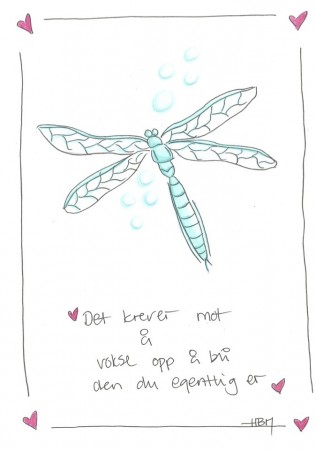 Det krever mot
å
vokse opp å bli
den du egentlig er
HBM